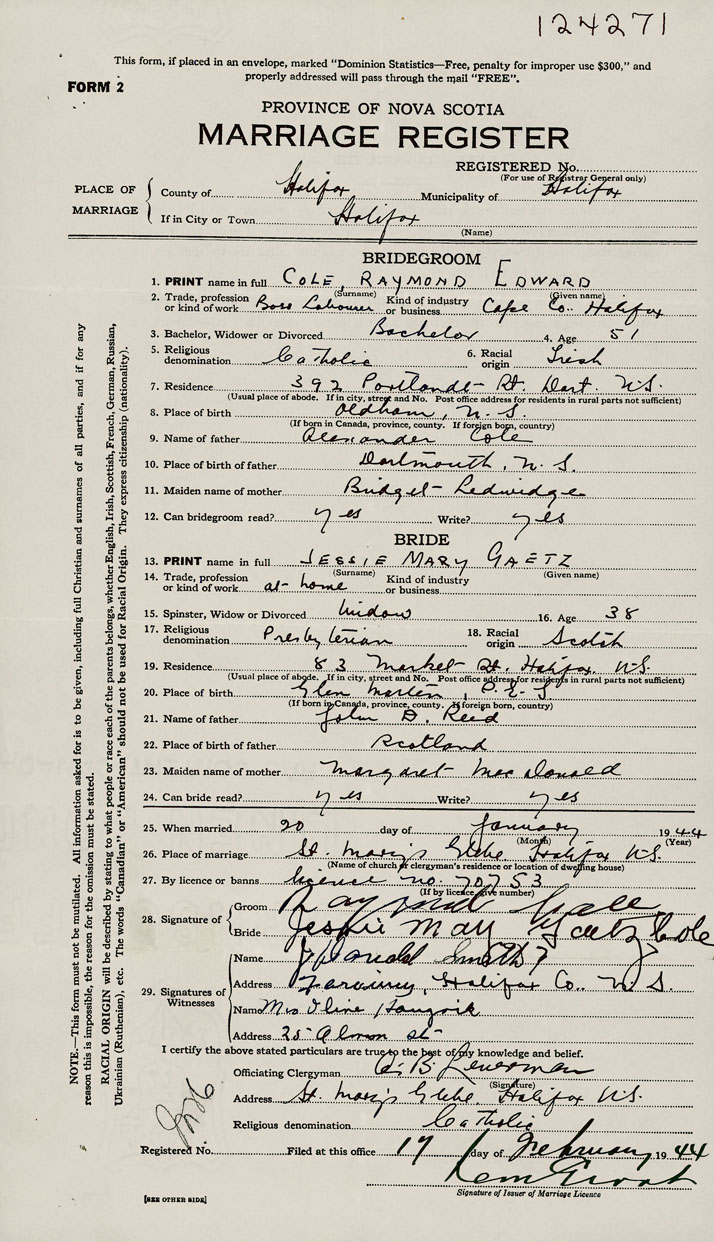 124271
This form, if placed in an envelope, marked "Dominion Statistics—Free, penalty for improper use $300," and
properly addressed will pass through the mail "FREE".
FORM 2
PROVINCE OF NOVA SCOTIA
MARRIAGE REGISTER
REGISTERED No.
(For use of Registrar General only)
PLACE OF MARRIAGE
County of Halifax Municipality of Halifax
If in City or Town Halifax
(Name)
BRIDEGROOM
1. PRINT name in full COLE, RAYMOND EDWARD
(Surname) (Given name)
2. Trade, profession or kind of work Boss Labourer Kind of industry or business Cape Co. Halifax
3. Bachelor, Widower or Divorced Bachelor 4. Age 51
5. Religious denomination Catholic 6. Racial origin Irish
7. Residence 392 Portland St. Dart. N.S.
(Usual place of abode. If in city, street and No. Post office address for residents in rural parts not sufficient)
8. Place of birth Oldham, N.S.
(If born in Canada, province, county. If foreign born, country)
9. Name of father Alexander Cole
10. Place of birth of father Dartmouth, N.S.
11. Maiden name of mother Bridget Ledwidge
12. Can bridegroom read? yes Write? yes
BRIDE
13. PRINT name in full JESSIE MARY GAETZ
(Surname) (Given name)
14. Trade, profession or kind of work at home Kind of industry or business
15. Spinster, Widow or Divorced Widow 16. Age 38
17. Religious denomination Presbyterian 18. Racial origin Scotch
19. Residence 83 Market St. Halifax N.S.
(Usual place of abode. If in city, street and No. Post office address for residents in rural parts not sufficient)
20. Place of birth Glen Martin, P.E.I.
(If born in Canada, province, county. If foreign born, country)
21. Name of father John D. Reed
22. Place of birth of father Scotland
23. Maiden name of mother Margaret MacDonald
24. Can bride read? yes Write? yes
25. When married 20 day of January 1944
(Month) (Year)
26. Place of marriage St. Mary's Glebe Halifax N.S.
(Name of church or clergyman's residence or location of dwelling house)
27. By licence or banns license no. 70753
(If by licence give number)
28. Signature of
Groom Raymond Cole
Bride Jessie May Gaetz Cole
29. Signatures of Witnesses
Name Donald Smith
Address Halifax Co. N.S.
Name Mrs Oline
Address 25 Almon St
I certify the above stated particulars are true to the best of my knowledge and belief.
Officiating Clergyman
(Signature)
Address St. Mary's Glebe Halifax N.S.
Religious denomination Catholic
Registered No. Filed at this office 17 day of February 1944
Signature of Issuer of Marriage Licence
[SEE OTHER SIDE]
NOTE.—This form must not be mutilated. All information asked for is to be given, including full Christian and surnames of all parties, and if for any
reason this is impossible, the reason for the omission must be stated.
RACIAL ORIGIN will be described by stating to what people or race each of the parents belongs, whether English, Irish, Scottish, French, German, Russian,
Ukrainian (Ruthenian), etc. The words "Canadian" or "American" should not be used for Racial Origin. They express citizenship (nationality).